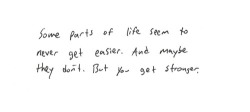 Some parts of life seem to
never get easier. And maybe
they don't. But you get stronger.